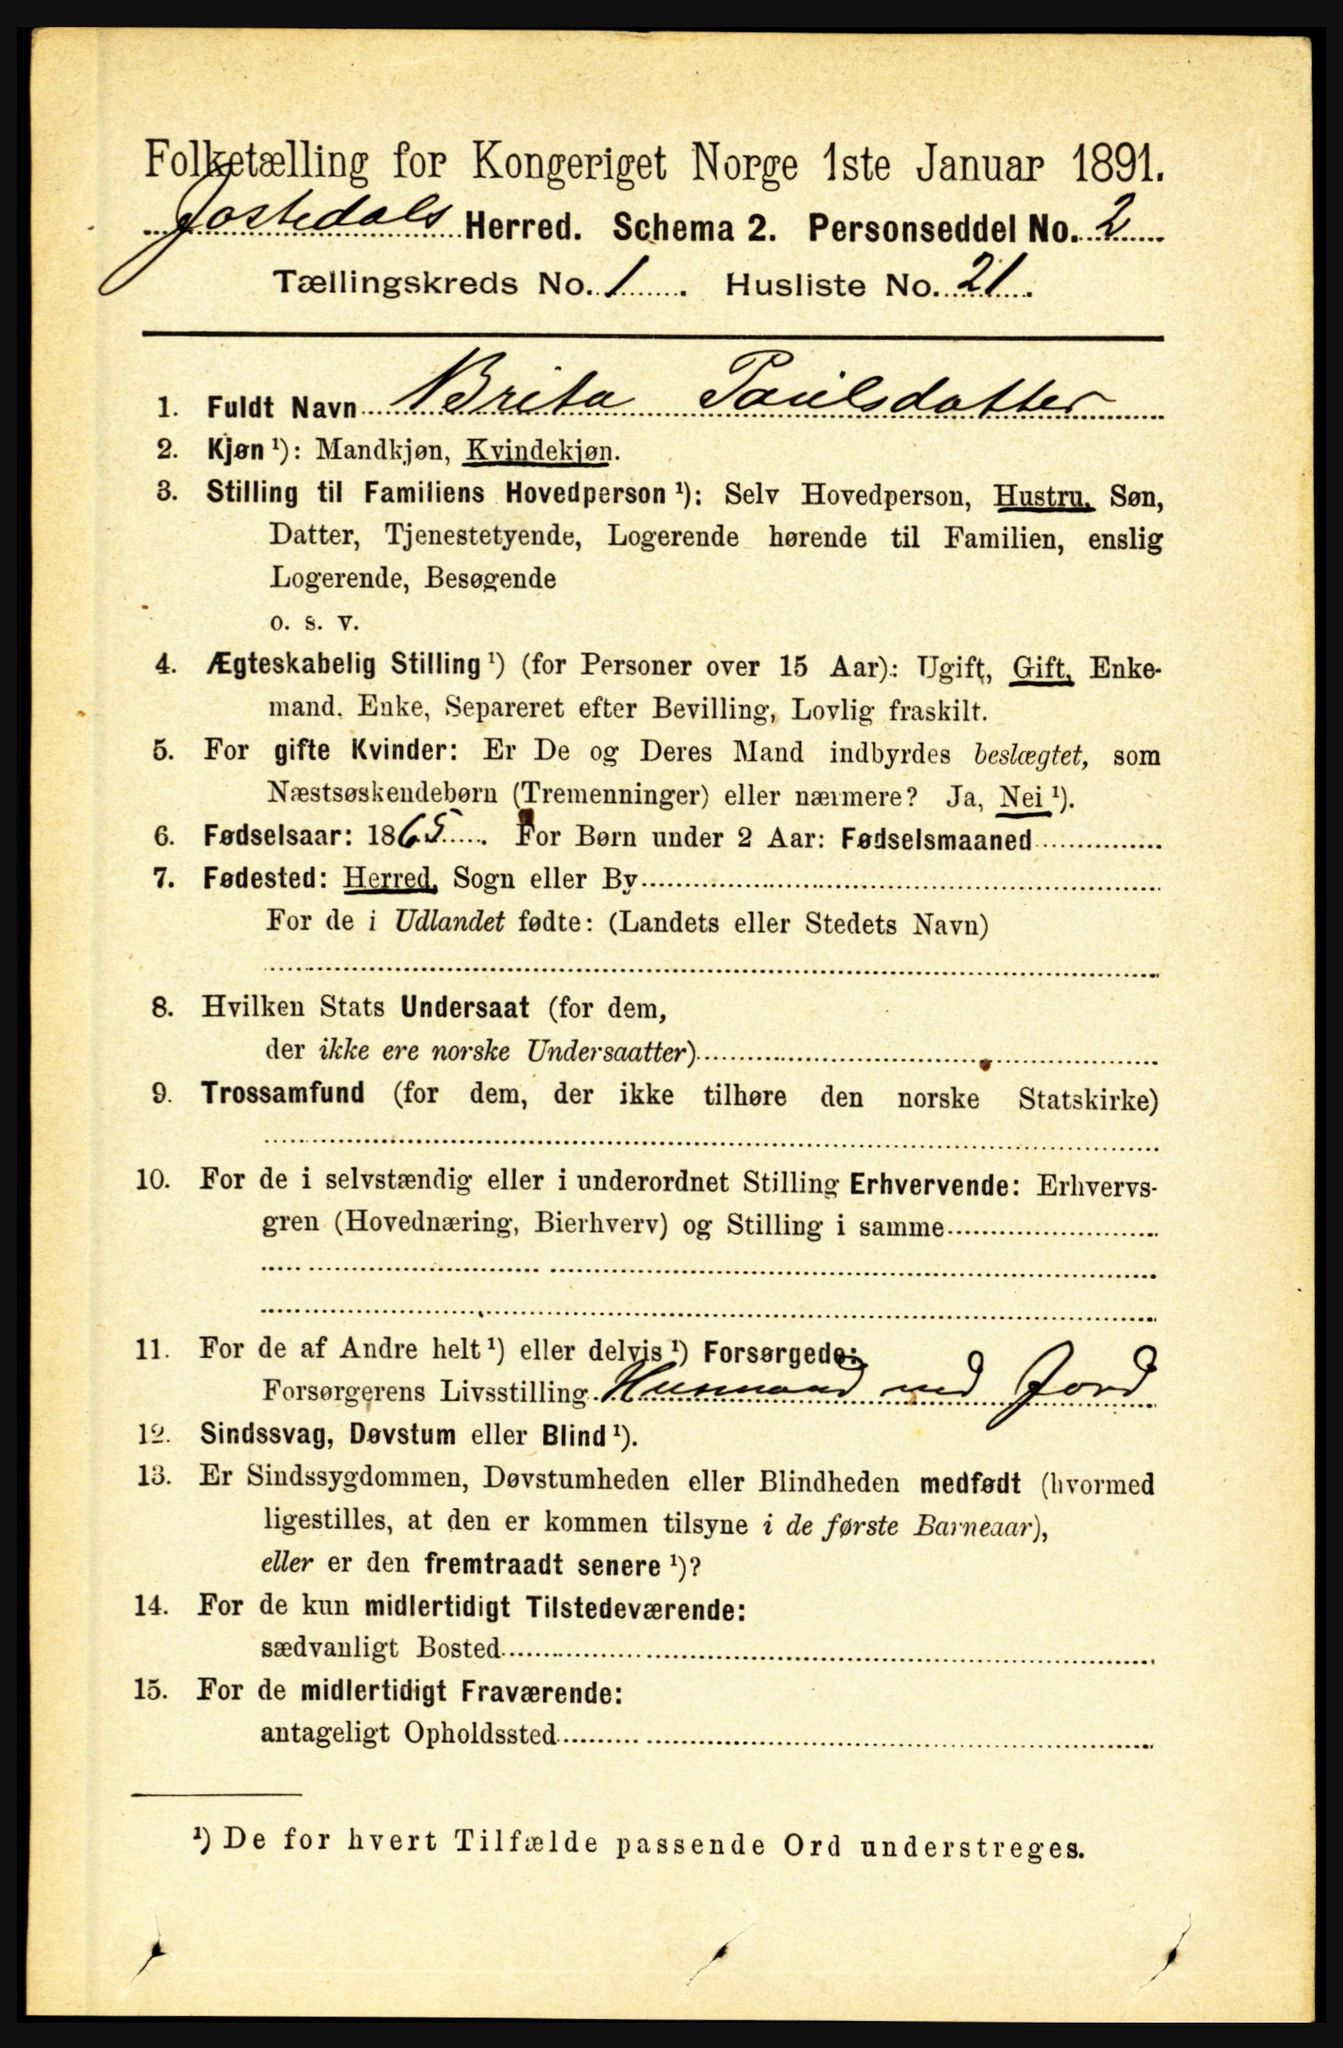 Folketælling for Kongeriget Norge 1ste Januar 1891.
Jostedals Herred. Schema 2. Personseddel No. 2
Tællingskreds No. 1. Husliste No. 21.
1. Fuldt Navn Brita Paulsdatter
2. Kjøn ¹): Mandkjøn, Kvindekjøn.
3. Stilling til Familiens Hovedperson ¹): Selv Hovedperson, Hustru, Søn,
Datter, Tjenestetyende, Logerende hørende til Familien, enslig
Logerende, Besøgende
o. s. v.
4. Ægteskabelig Stilling ¹) (for Personer over 15 Aar): Ugift, Gift, Enke-
mand, Enke, Separeret efter Bevilling, Lovlig fraskilt.
5. For gifte Kvinder: Er De og Deres Mand indbyrdes beslægtet, som
Næstsøskendebørn (Tremenninger) eller nærmere? Ja, Nei ¹).
6. Fødselsaar: 1865. For Børn under 2 Aar: Fødselsmaaned
7. Fødested: Herred, Sogn eller By
For de i Udlandet fødte: (Landets eller Stedets Navn)
8. Hvilken Stats Undersaat (for dem,
der ikke ere norske Undersaatter)
9. Trossamfund (for dem, der ikke tilhøre den norske Statskirke)
10. For de i selvstændig eller i underordnet Stilling Erhvervende: Erhvervs-
gren (Hovednæring, Bierhverv) og Stilling i samme
11. For de af Andre helt ¹) eller delvis ¹) Forsørgede:
Forsørgerens Livsstilling Husmand med Jord
12. Sindssvag, Døvstum eller Blind ¹).
13. Er Sindssygdommen, Døvstumheden eller Blindheden medfødt (hvormed
ligestilles, at den er kommen tilsyne i de første Barneaar),
eller er den fremtraadt senere ¹)?
14. For de kun midlertidigt Tilstedeværende:
sædvanligt Bosted
15. For de midlertidigt Fraværende:
antageligt Opholdssted
¹) De for hvert Tilfælde passende Ord understreges.